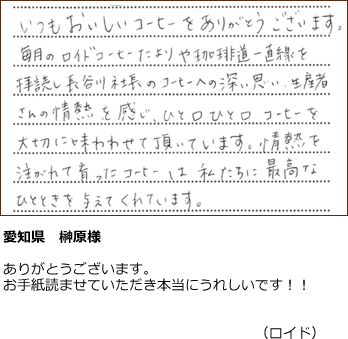 いつもおいしいコーヒーをありがとうございます。
毎月のロイドコーヒーたよりや珈琲道一直線を
拝読し長谷川社長のコーヒーへの深い思い、生産者
さんの情熱を感じ、ひと口ひと口コーヒーを
大切に味わわせて頂いています。情熱を
注がれて育ったコーヒーは私たちに最高な
ひとときを与えてくれています。
愛知県　榊原様
ありがとうございます。
お手紙読ませていただき本当にうれしいです！！
（ロイド）